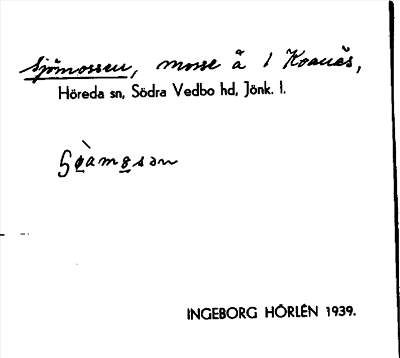 Sjömossen, mosse å 1 Kvarnås,
Höreda sn, Södra Vedbo hd, Jönk. l.
INGEBORG HÖRLÉN 1939.